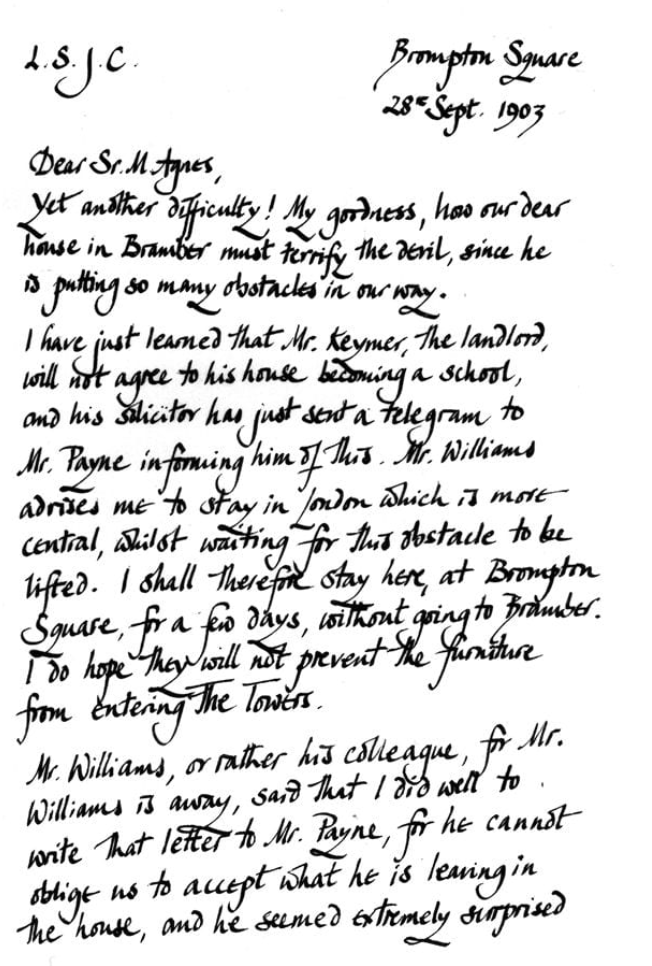 L.S.J.C.
Brompton Square
28th Sept. 1903
Dear Sr. M. Agnes,
Yet another difficulty! My goodness, how our dear
house in Bramber must terrify the devil, since he
is putting so many obstacles in our way.
I have just learned that Mr. Keymer, the landlord,
will not agree to his house becoming a school,
and his solicitor has just sent a telegram to
Mr. Payne informing him of this. Mr. Williams
advises me to stay in London which is more
central, whilst waiting for this obstacle to be
lifted. I shall therefore stay here, at Brompton
Square, for a few days, without going to Bramber.
I do hope they will not prevent the furniture
from entering The Towers.
Mr. Williams, or rather his colleague, for Mr.
Williams is away, said that I did well to
write that letter to Mr. Payne, for he cannot
oblige us to accept what he is leaving in
the house, and he seemed extremely surprised